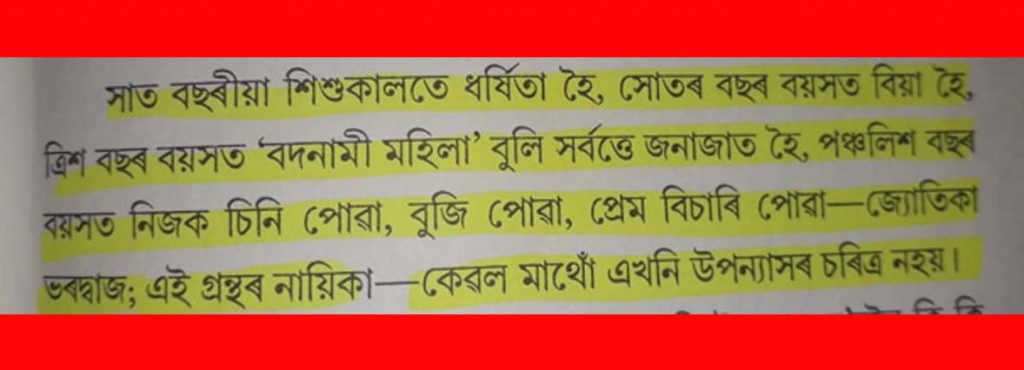 সাত বছৰীয়া শিশুকালতে ধৰ্ষিতা হৈ, সোতৰ বছৰ বয়সত বিয়া হৈ,
ত্ৰিশ বছৰ বয়সত ‘বদনামী মহিলা’ বুলি সৰ্বত্তে জনাজাত হৈ, পঞ্চলিশ বছৰ
বয়সত নিজক চিনি পোৱা, বুজি পোৱা, প্ৰেম বিচাৰি পোৱা—জ্যোতিকা
ভৰদ্বাজ; এই গ্ৰন্থৰ নায়িকা—কেৱল মাথোঁ এখনি উপন্যাসৰ চৰিত্ৰ নহয়।